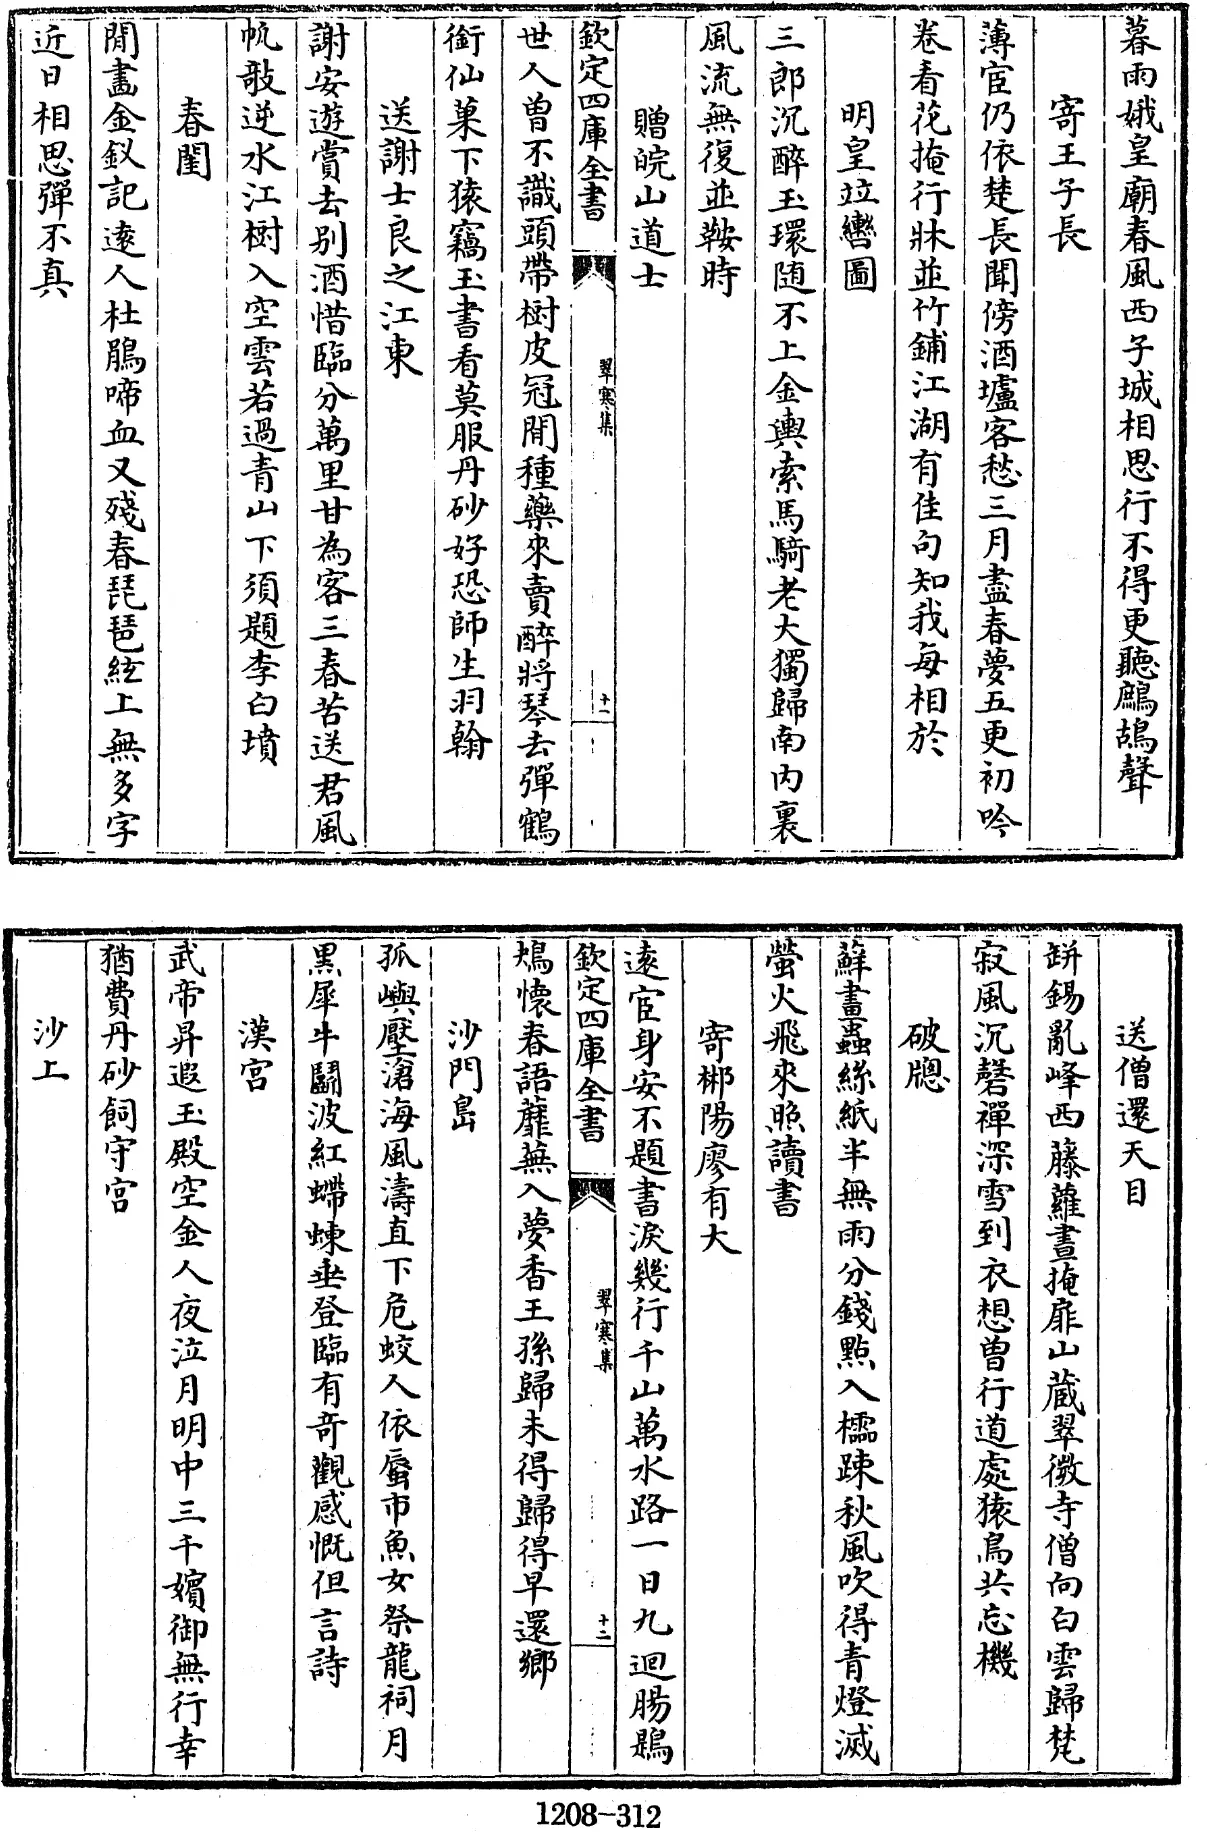 暮雨娥皇廟春風西子城相思行不得更聽鷓鴣聲
寄王子長
薄宦仍依楚長聞傍酒壚客愁三月盡春夢五更初吟
卷看花掩行牀並竹鋪江湖有佳句知我每相於
明皇竝轡圖
三郎沉醉玉環随不上金輿索馬騎老大獨歸南内裏
風流無復並鞍時
贈皖山道士
欽定四庫全書
翠寒集
十一
世人曽不識頭帶樹皮冠閒種藥來賣醉將琴去彈鶴
銜仙菓下猿竊玉書看莫服丹砂好恐師生羽翰
送謝士良之江東
謝安遊賞去别酒惜臨分萬里甘為客三春苦送君風
帆敲逆水江樹入空雲若過青山下須題李白墳
春閨
閒畫金釵記逺人杜鵑啼血又殘春琵琶絃上無多字
近日相思彈不真
送僧還天目
缾錫亂峰西藤蘿晝掩扉山蔵翠微寺僧向白雲歸梵
寂風沉磬禪深雪到衣想曽行道處猿鳥共忘機
破牕
蘚畫蟲絲紙半無雨分錢點入櫺疎秋風吹得青燈滅
螢火飛來照讀書
寄郴陽廖有大
逺宦身安不題書淚幾行千山萬水路一日九迴腸鶗
欽定四庫全書
翠寒集
十二
鴂懐春語蘼蕪入夢香王孫歸未得歸得早還鄉
沙門島
孤嶼壓滄海風濤直下危蛟人依蜃市魚女祭龍祠月
黒犀牛鬭波紅螮蝀垂登臨有奇觀感慨但言詩
漢宫
武帝昇遐玉殿空金人夜泣月明中三千嬪御無行幸
猶費丹砂飼守宫
沙上
1208-312